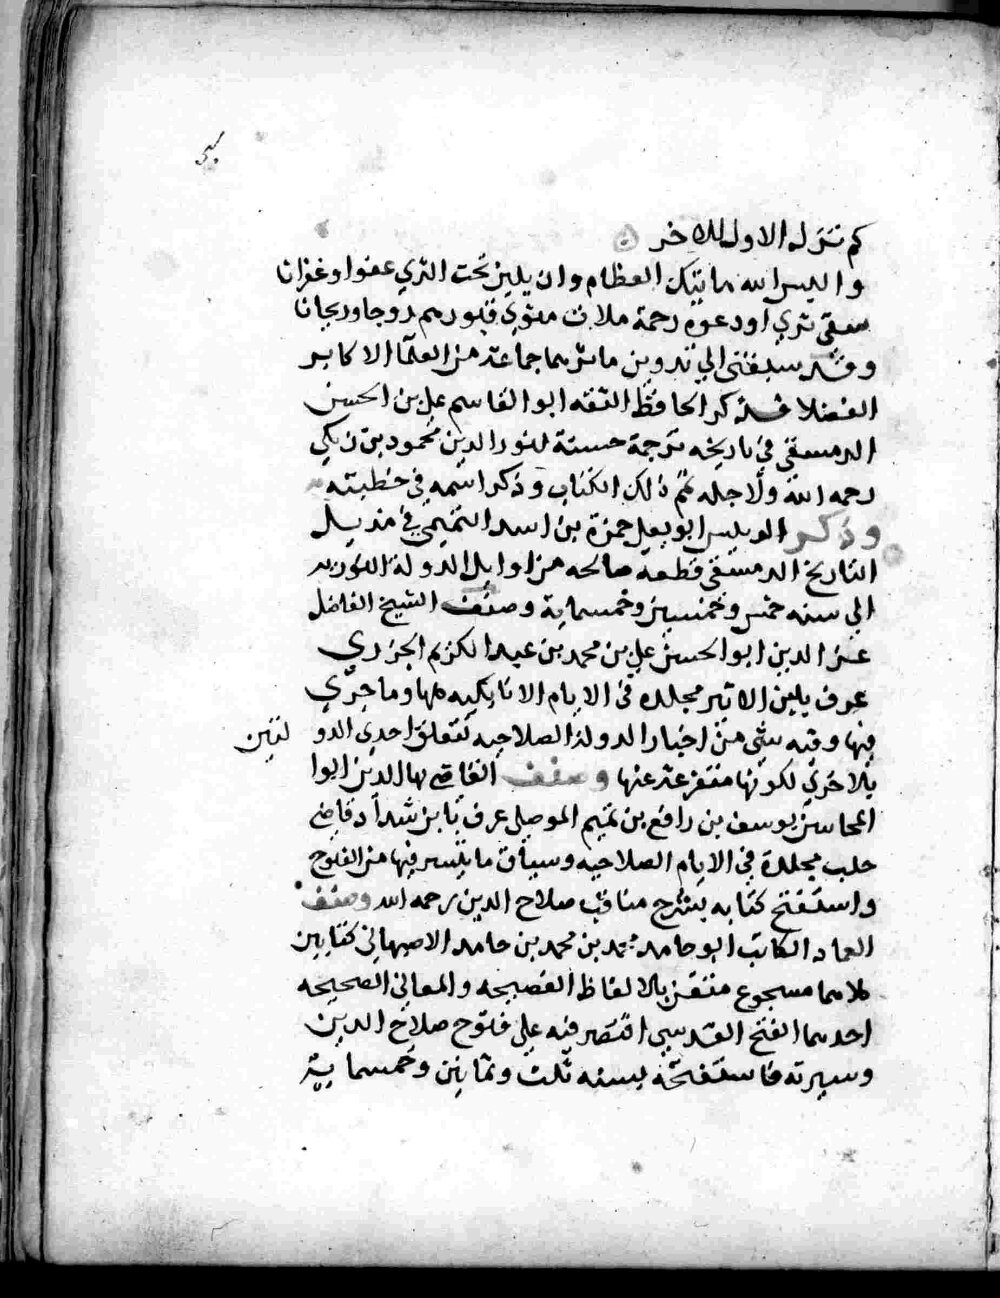 كم ترك الاول للاخر
والبس الله هاتيك العظام وان بلين تحت الثري عفوا وغفرانا
سقى ثري اودعوه رحمة ملات مثوي قبورهم روحا وريحانا
وقد سبقني الي تدوين ماثرهما جماعة من العلما الاكابر
الفضلا فذكر الحافظ الثقه ابو القاسم علي بن الحسن
الدمشقي في تاريخه ترجمة حسنة لنور الدين محمود بن زنكي
رحمه الله ولاجله تمم ذلك الكتاب وذكر اسمه في خطبته
وذكر الرييس ابو يعلي حمزة بن اسد التميمي في مذيل
التاريخ الدمشقي قطعة صالحه من اوايل الدولة النوريه
الي سنه خمس وخمسين وخمسماية وصنف الشيخ الفاضل
عز الدين ابو الحسن علي بن محمد بن عبد الكريم الجزري
عرف بابن الاثير مجلده في الايام الاتابكيه كلها وما جري
فيها وفيه شي من اخبار الدولة الصلاحيه لتعلق احدي الدو لتين
بالاخري لكونها متفرعة عنها وصنف القاضي بها الدين ابوا
المحاسن يوسف بن رافع بن تميم الموصلي عرف بابن شداد قاضي
حلب مجلدة في الايام الصلاحيه وسياق ما تيسر فيها من الفتوح
واستفتح كتابه بشرح مناقب صلاح الدين رحمه الله وصنف
العماد الكاتب ابو حامد محمد بن محمد بن حامد الاصبهاني كتابين
كلاهما مسجوع متقن بالالفاظ الفصيحه والمعاني الصحيحه
احدهما الفتح القدسي اقتصر فيه علي فتوح صلاح الدين
وسيرته فاستفتحه بسنه ثلث وثمانين وخمسماية